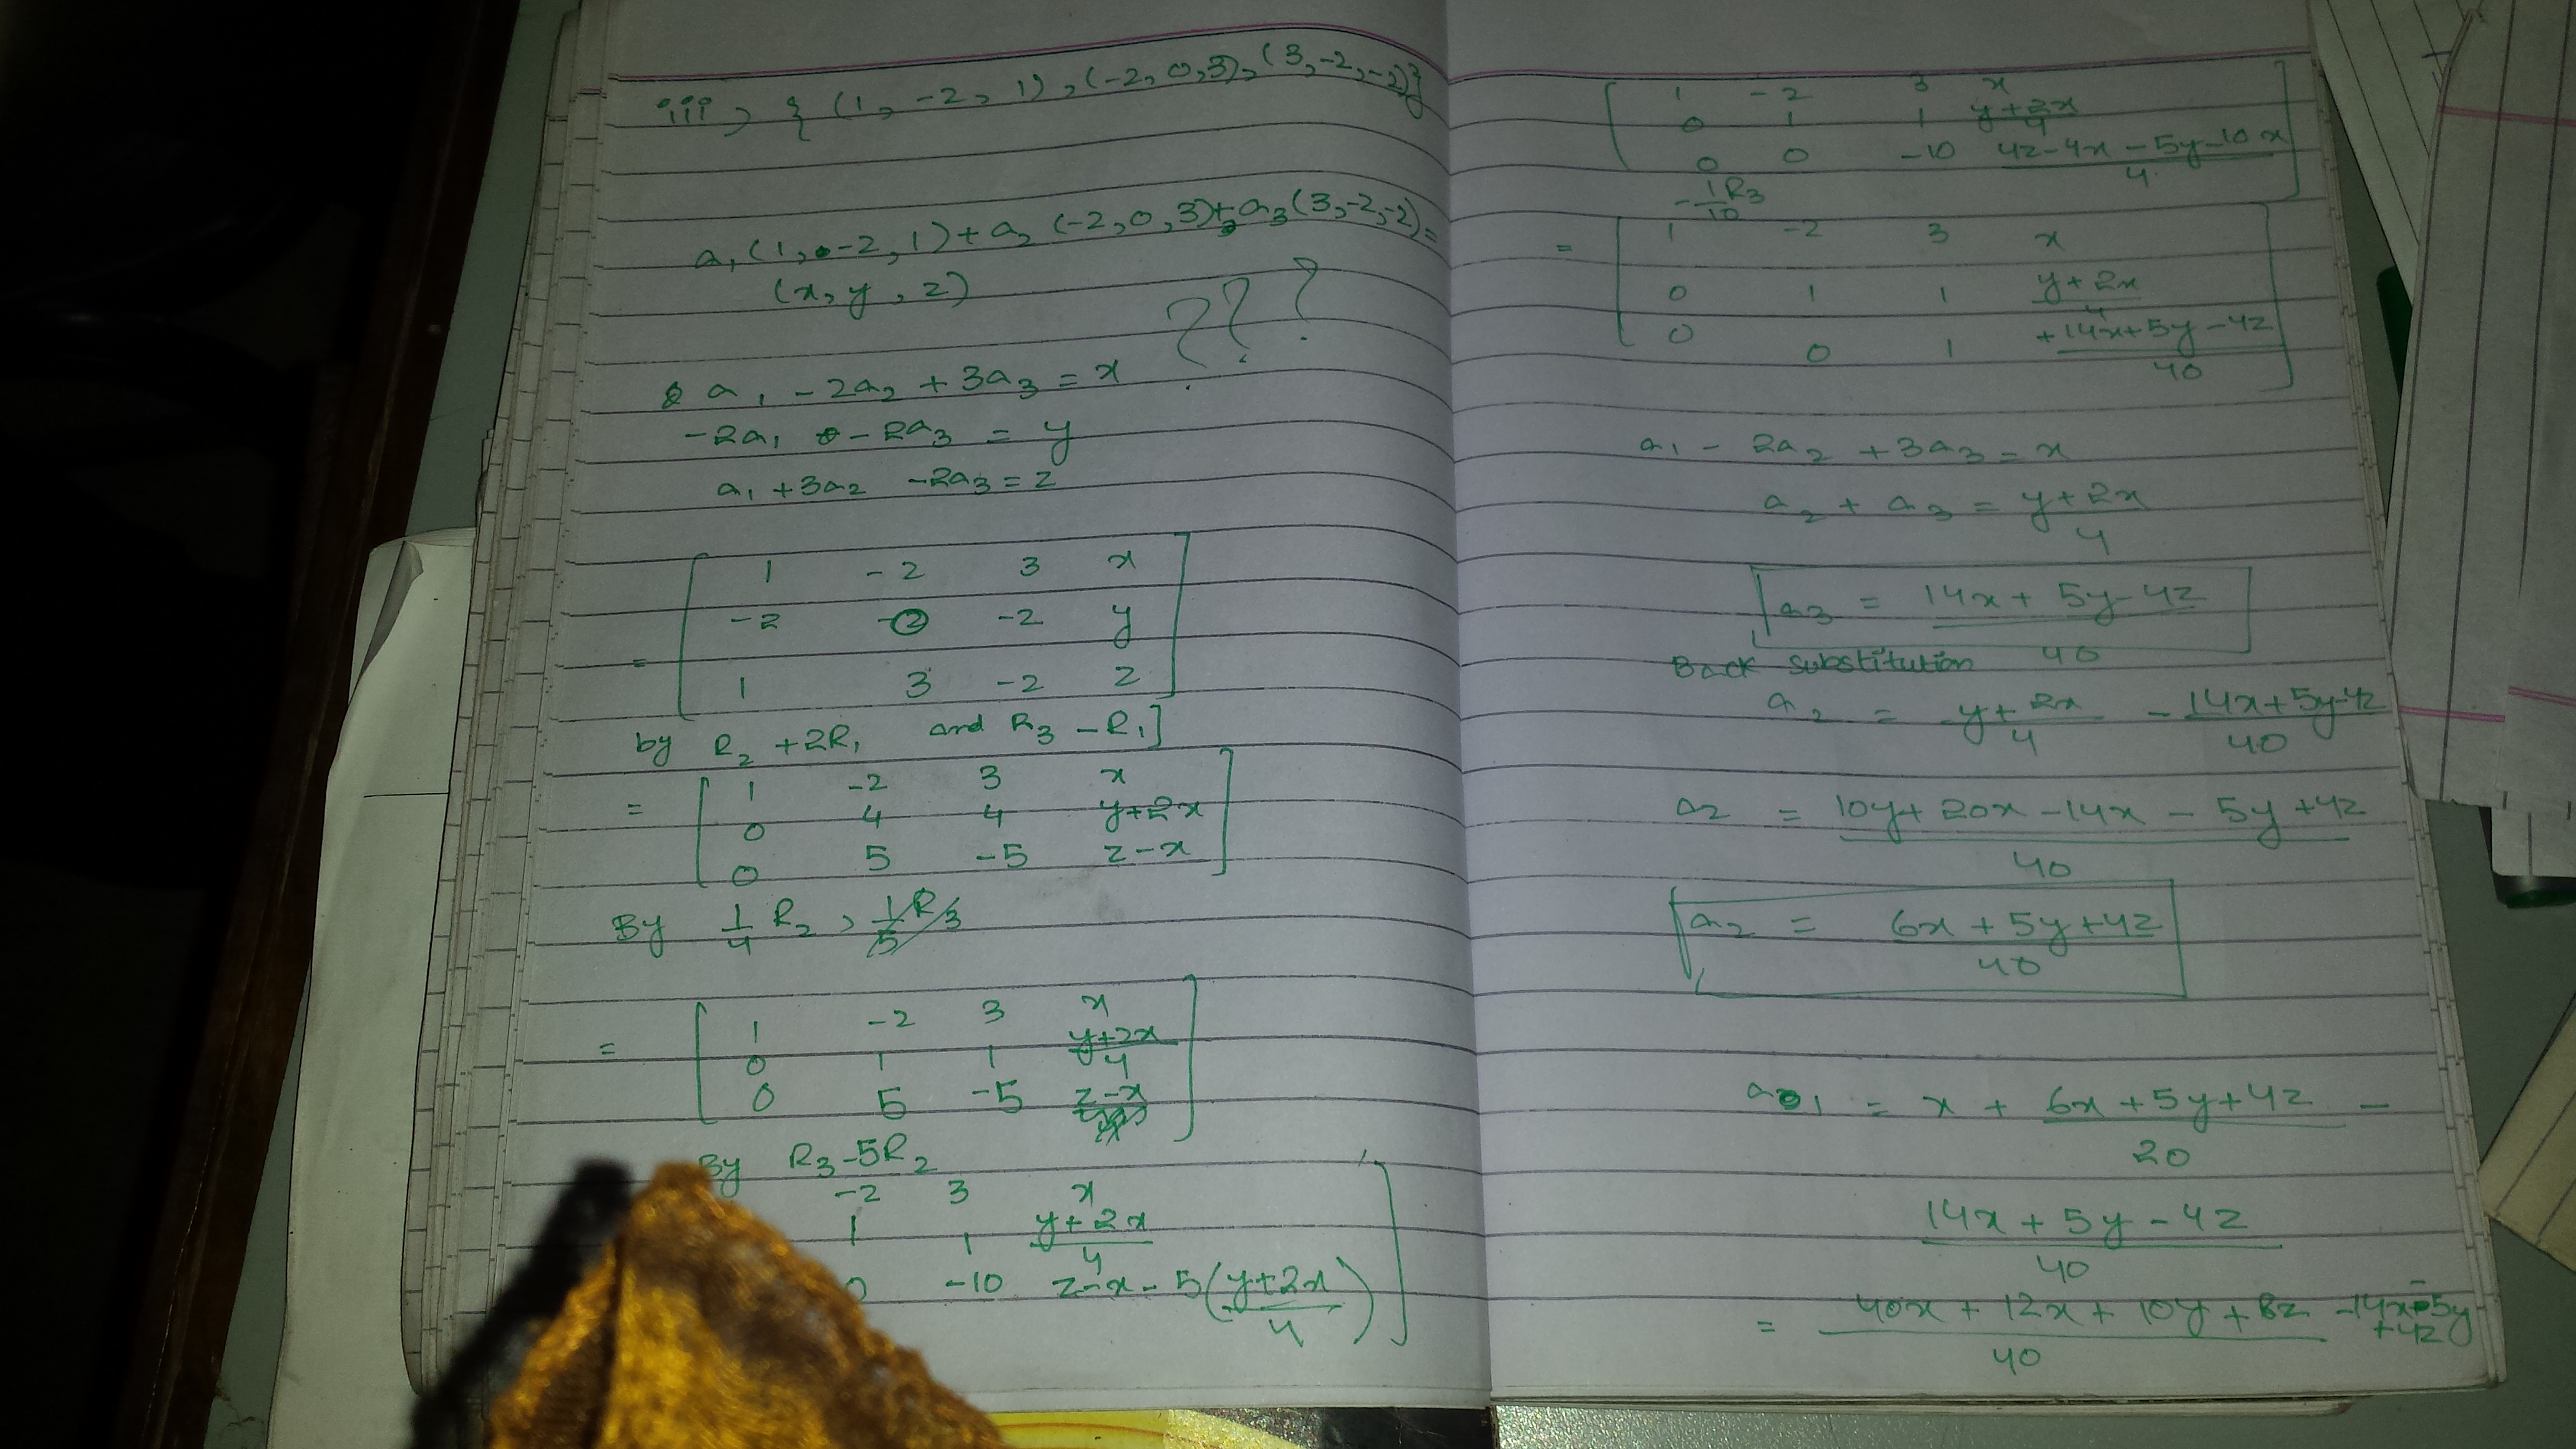 iii, { (1, -2, 1), (-2, 0, 3), (3, -2, -2)}
a₁(1, -2, 1) + a₂(-2, 0, 3) + a₃(3, -2, -2) =
(x, y, z)
???
a₁ - 2a₂ + 3a₃ = x
-2a₁ - 2a₃ = y
a₁ + 3a₂ - 2a₃ = z
1 -2 3 x
= -2 0 -2 y
1 3 -2 z
by R₂ + 2R₁ and R₃ - R₁]
1 -2 3 x
= 0 4 4 y+2x
0 5 -5 z-x
By 1/4 R₂, 1/5 R₃
1 -2 3 x
= 0 1 1 (y+2x)/4
0 5 -5 z-x
By R₃ - 5R₂
-2 3 x
1 1 (y+2x)/4
0 -10 z-x-5((y+2x)/4)
1 -2 3 x
0 1 1 (y+2x)/4
0 0 -10 (4z-4x-5y-10x)/4
-1/10 R₃
1 -2 3 x
= 0 1 1 (y+2x)/4
0 0 1 (+14x+5y-4z)/40
a₁ - 2a₂ + 3a₃ = x
a₂ + a₃ = (y+2x)/4
a₃ = (14x+5y-4z)/40
Back substitution
a₂ = (y+2x)/4 - (14x+5y-4z)/40
a₂ = (10y+20x-14x-5y+4z)/40
a₂ = (6x+5y+4z)/40
a₁ = x + (6x+5y+4z)/20 -
(14x+5y-4z)/40
= (40x+12x+10y+8z-14x-5y+4z)/40